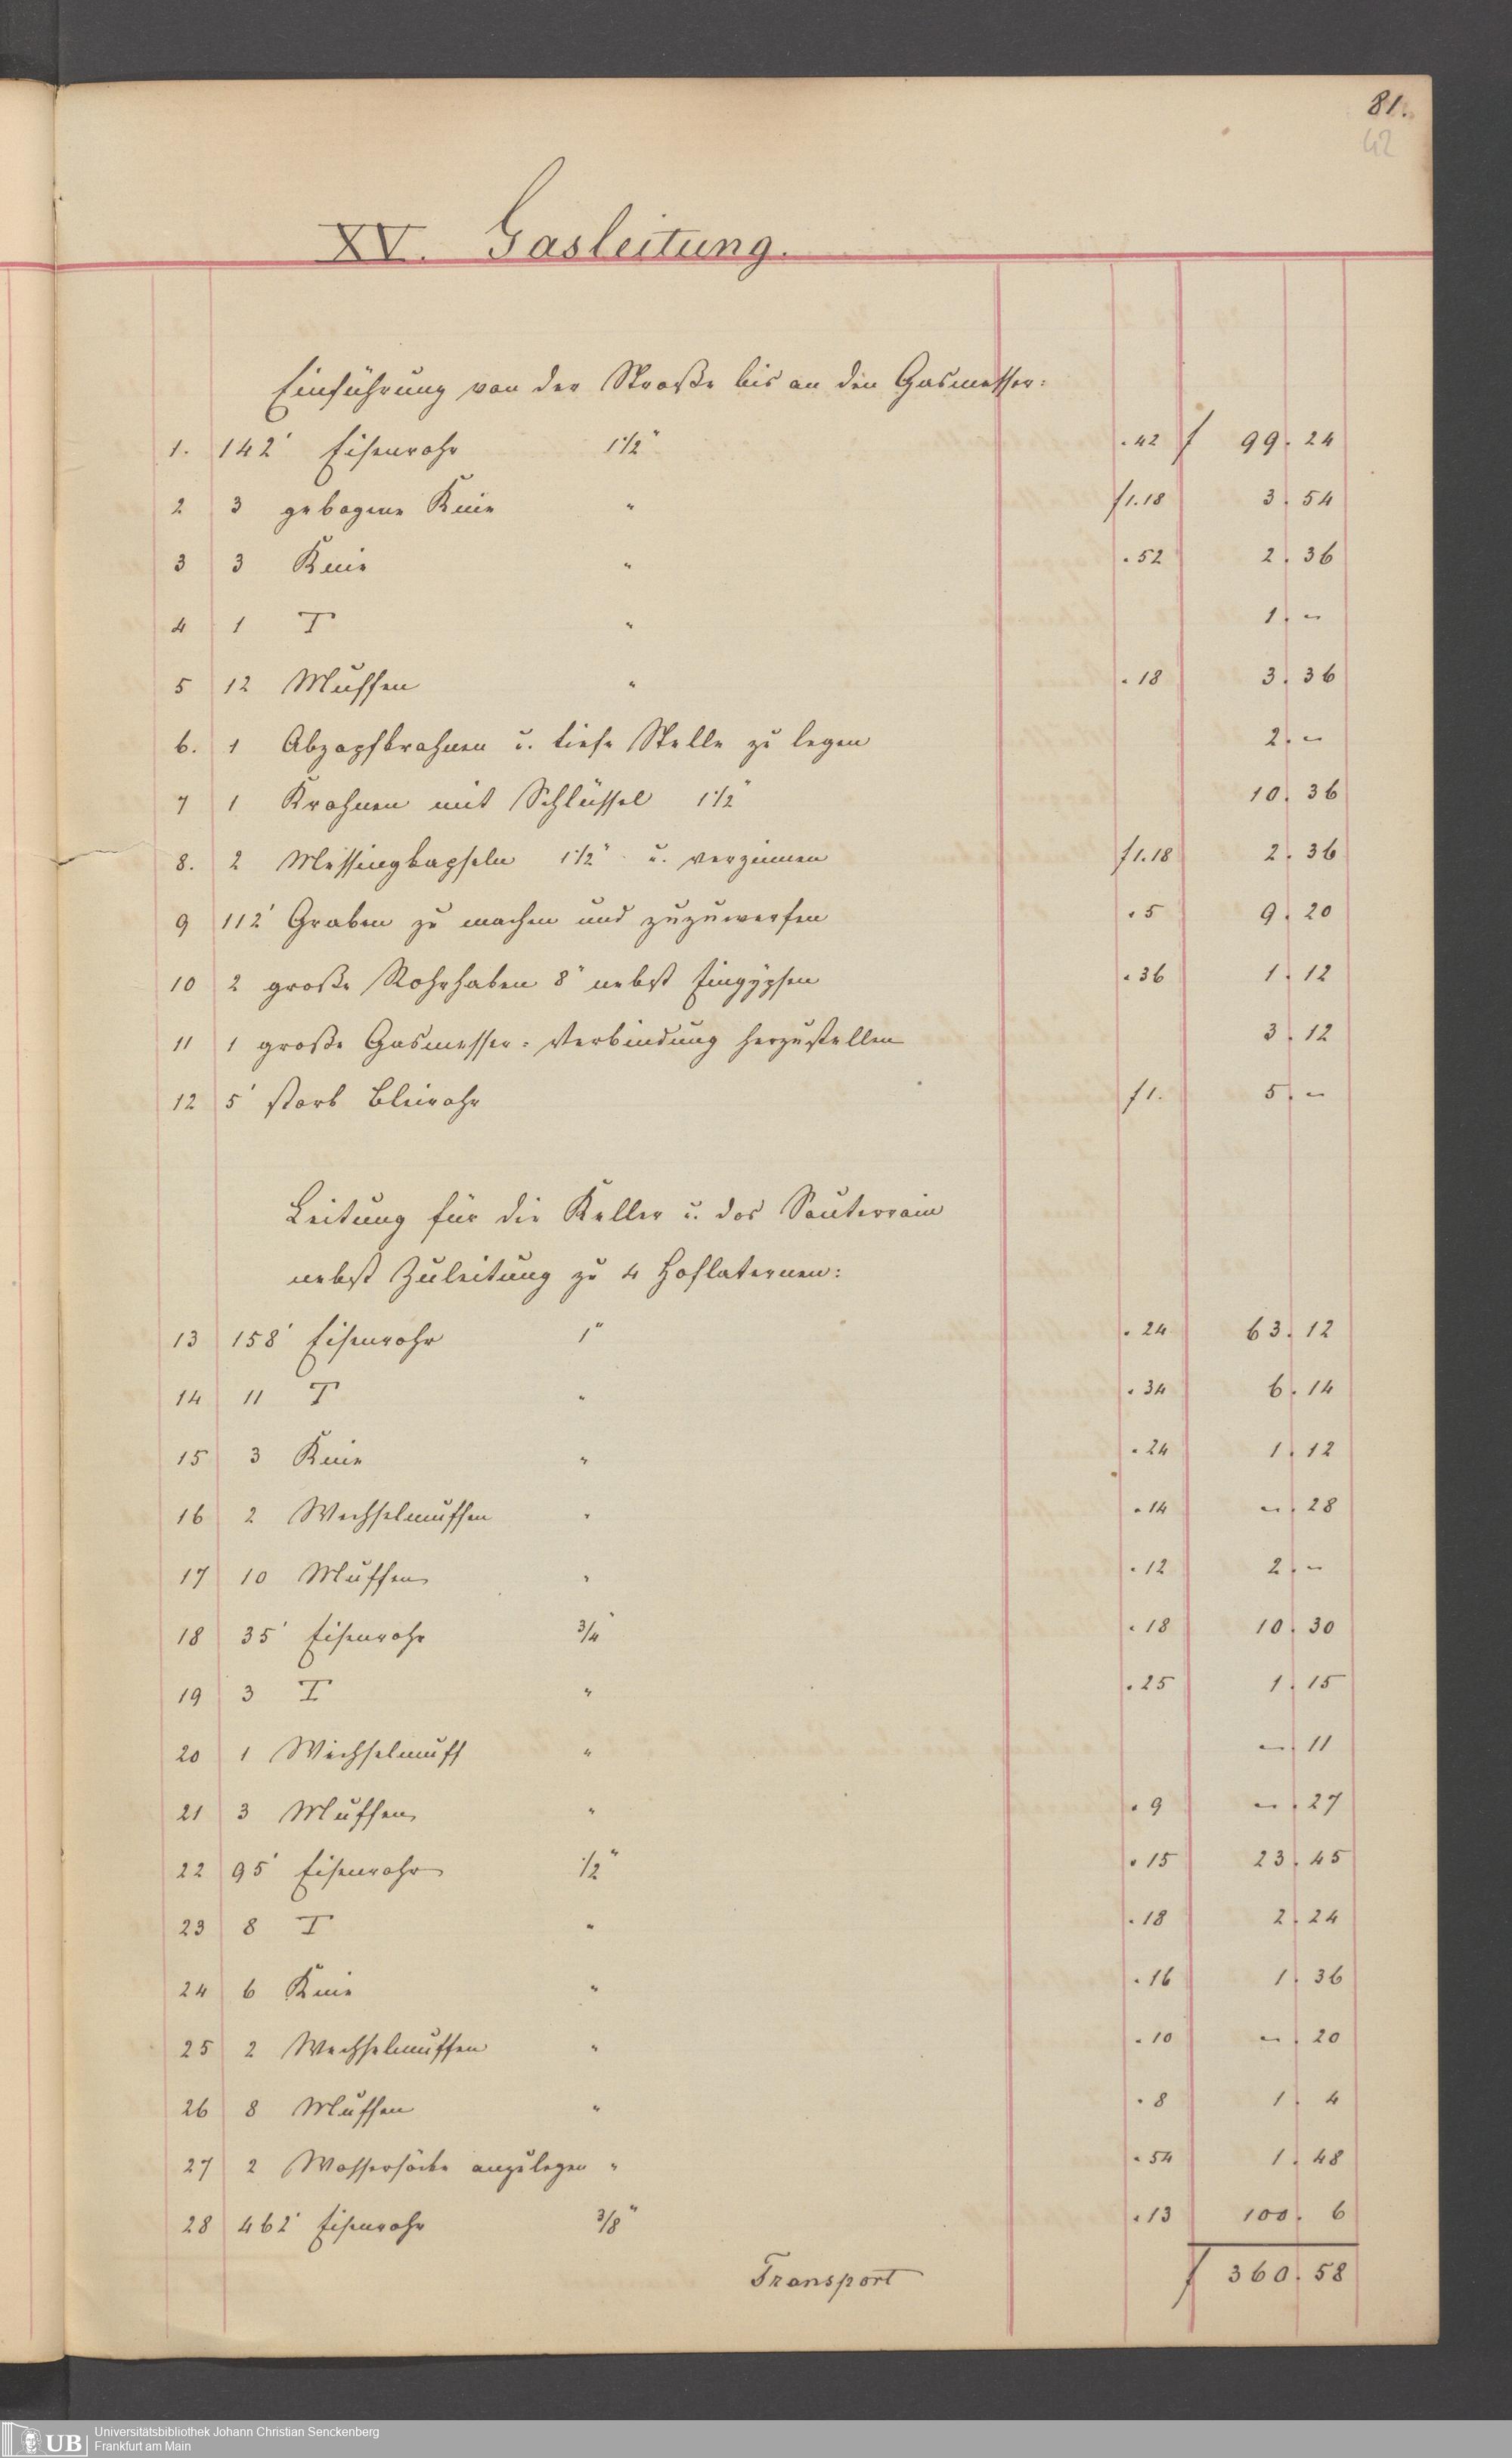 81.
42
XV. Gasleitung.
Einführung von der Straße bis an den Gasmesser:
1. 142' Eisenrohr 1 1/2" . 42 f 99. 24
2 3 gebogene Knie " f 1. 18 3. 54
3 3 Knie " . 52 2. 36
4 1 T " 1. –
5 12 Muffen " . 18 3. 36
6. 1 Abzapfkrahnen u. tiefe Stelle zu legen 2. –
7 1 Krahnen mit Schlüssel 1 1/2" 10. 36
8. 2 Messingkapseln 1 1/2" u. verzinnen f 1. 18 2. 36
9 112' Graben zu machen und zuzuwerfen . 5 9. 20
10 2 große Rohrhaken 8" nebst Eingypsen . 36 1. 12
11 1 große Gasmesser: Verbindung herzustellen 3. 12
12 5' stark Bleirohr f 1. 5. –
Leitung für die Keller u. das Souterrain
nebst Zuleitung zu 4 Hoflaternen:
13 158' Eisenrohr 1" . 24 63. 12
14 11 T " . 34 6. 14
15 3 Knie " . 24 1. 12
16 2 Wechselmuffen " . 14 – . 28
17 10 Muffen " . 12 2. –
18 35' Eisenrohr 3/4" . 18 10. 30
19 3 T " . 25 1. 15
20 1 Wechselmuff " – 11
21 3 Muffen " . 9 – . 27
22 95' Eisenrohr 1/2" . 15 23. 45
23 8 T " . 18 2. 24
24 6 Knie " . 16 1. 36
25 2 Wechselmuffen " . 10 – . 20
26 8 Muffen " . 8 1. 4
27 2 Wassersäcke anzulegen " . 54 1. 48
28 462' Eisenrohr 3/8" . 13 100. 6
Transport f 360. 58
UB Universitätsbibliothek Johann Christian Senckenberg
Frankfurt am Main